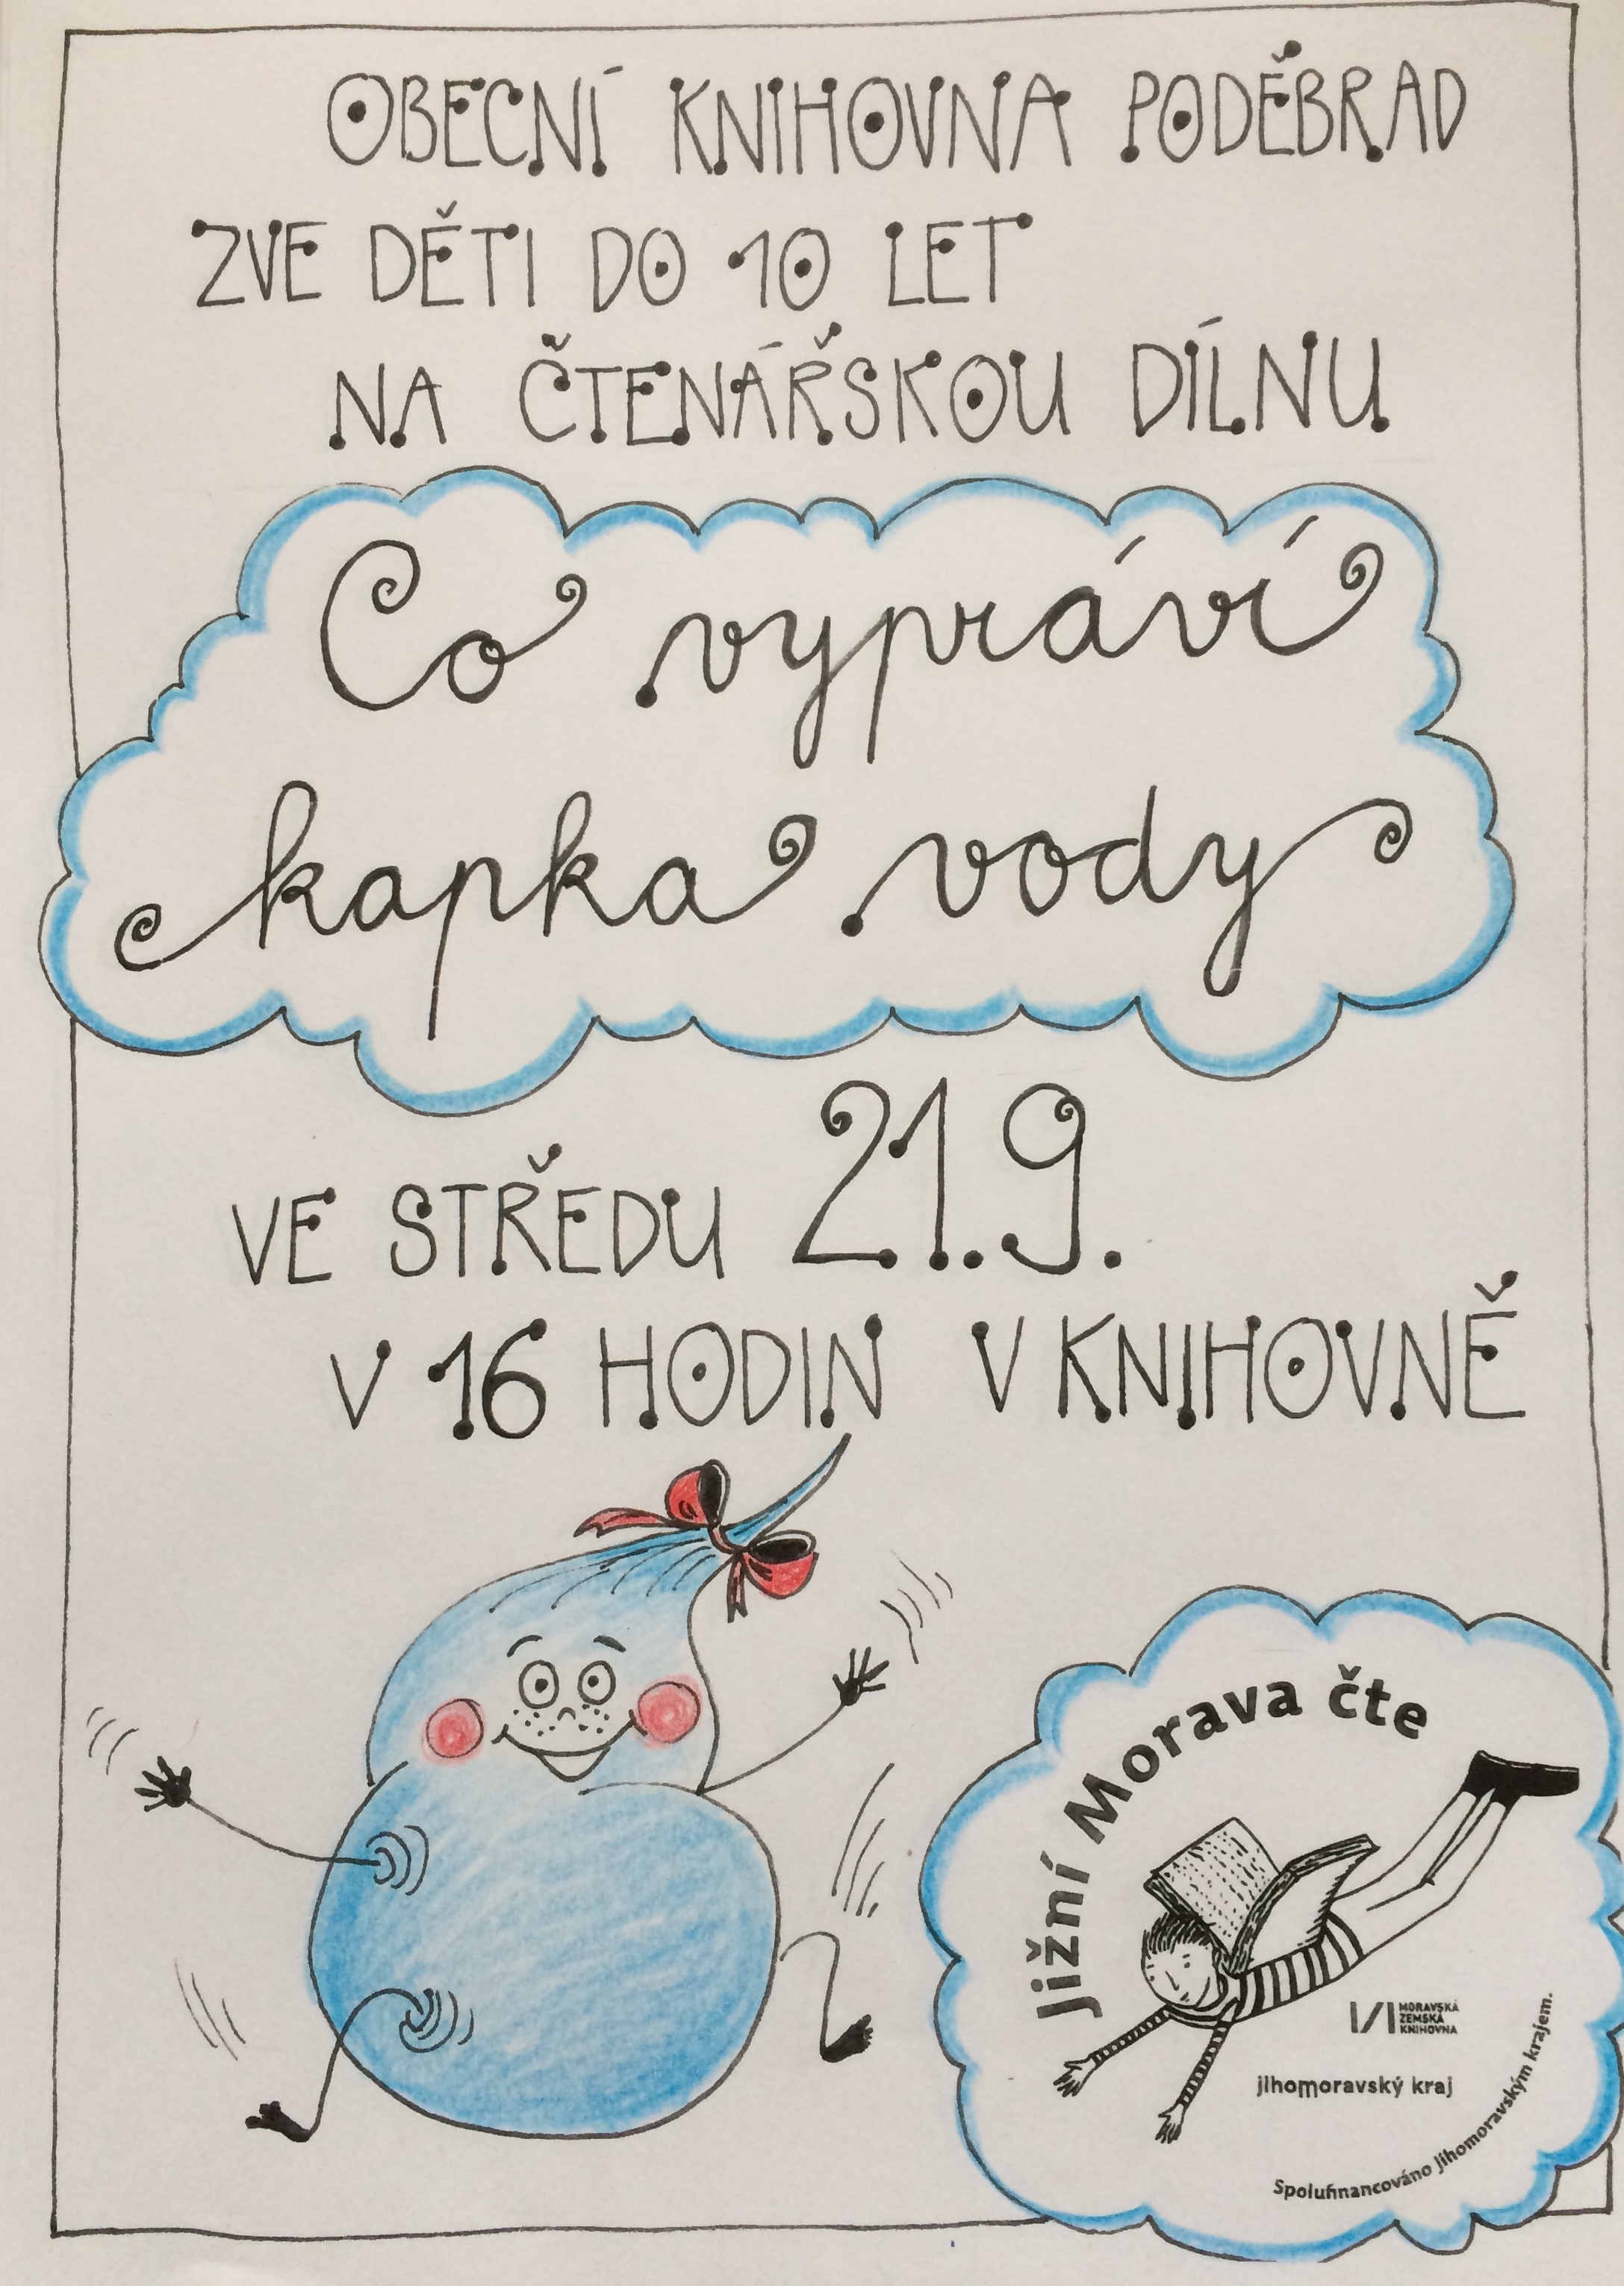 OBECNÍ KNIHOVNA PODĚBRAD
ZVE DĚTI DO 10 LET
NA ČTENÁŘSKOU DÍLNU
Co vypráví
kapka vody
VE STŘEDU 21.9.
V 16 HODIN V KNIHOVNĚ
Jižní Morava čte
MORAVSKÁ
ZEMSKÁ
KNIHOVNA
jihomoravský kraj
Spolufinancováno Jihomoravským krajem.